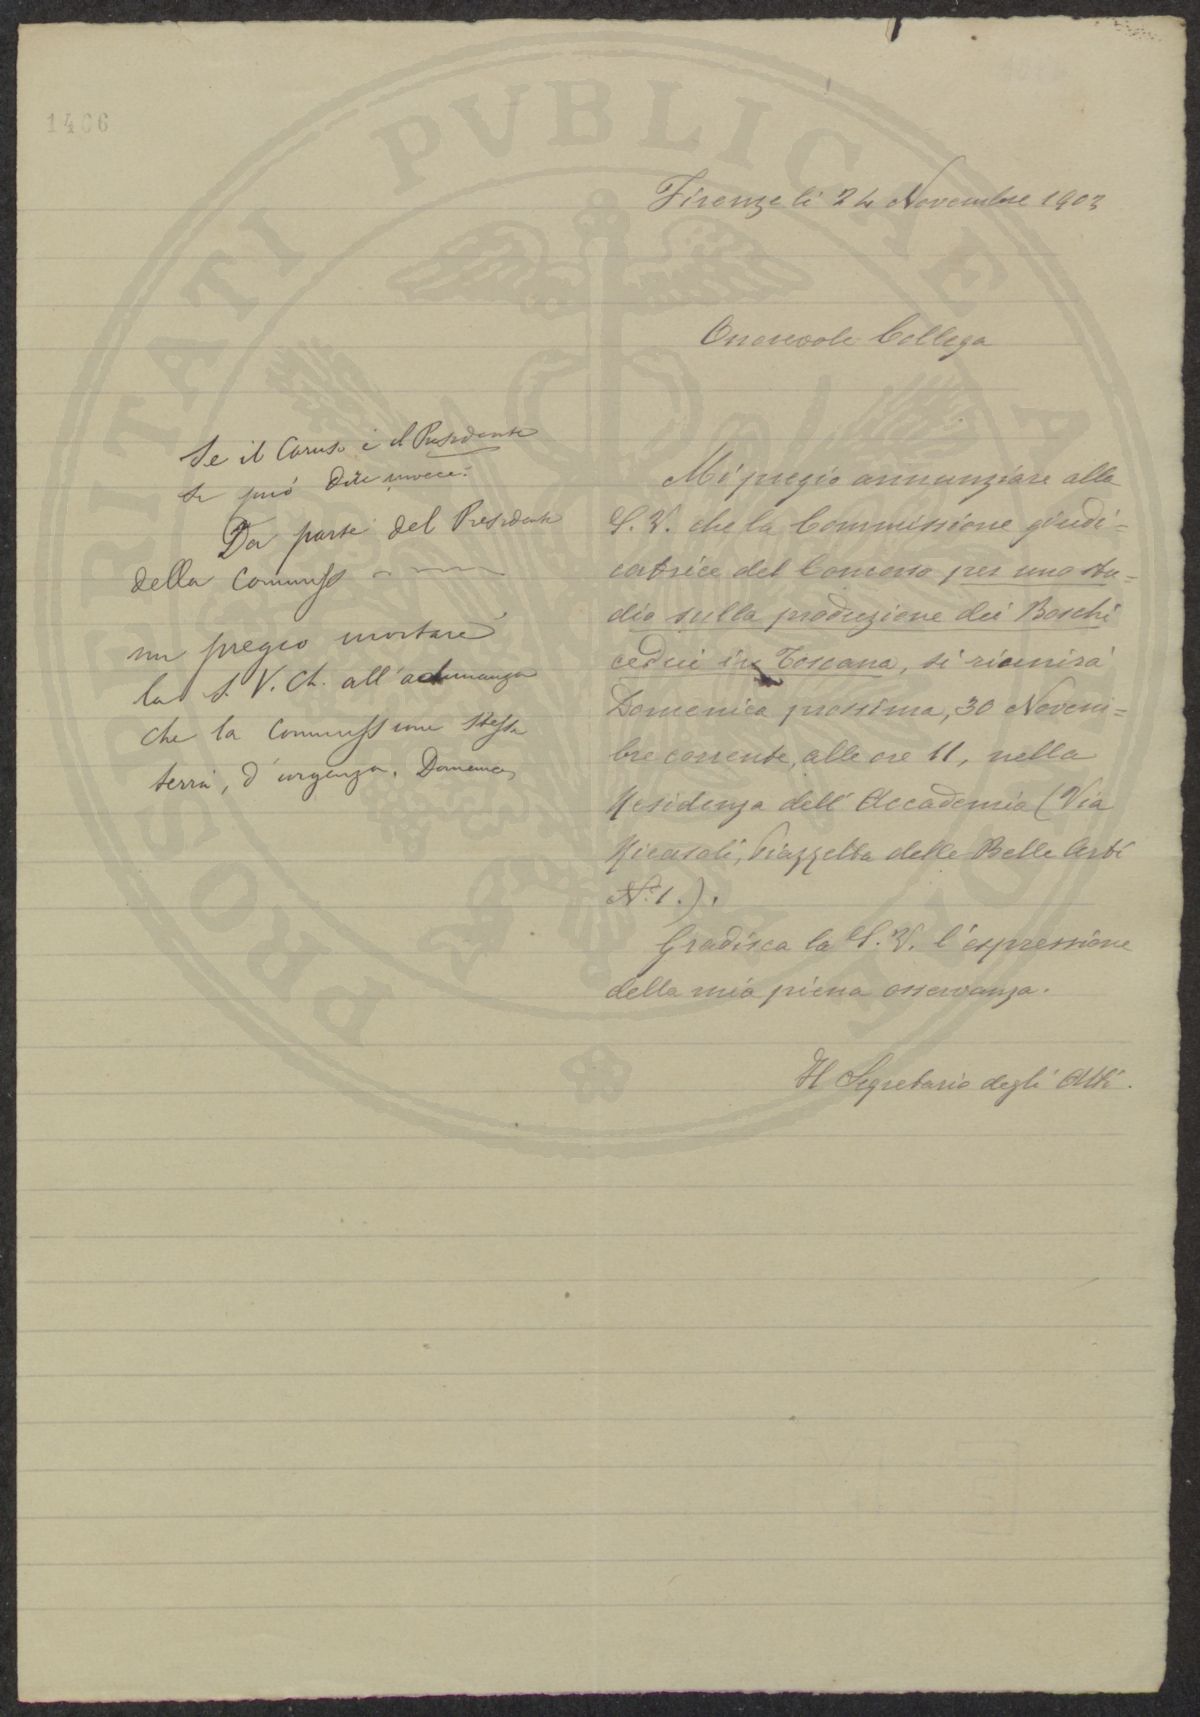 1406
Firenze li 24 Novembre 1903
Onorevole Collega
Se il Caruso è il Presidente
si può dire invece:
Da parte del Presidente
della Commiss
mi pregio invitare
la S. V. Ch. all'adunanza
che la Commissione stessa
terrà, d'urgenza, Domenica,
Mi pregio annunziare alla
S. V. che la Commissione giudi=
catrice del Concorso per uno stu=
dio sulla produzione dei Boschi
cedui in Toscana, si riunirà
Domenica prossima, 30 Novem=
bre corrente, alle ore 11, nella
Residenza dell'Accademia (Via
Ricasoli, Piazzetta delle Belle Arti
N.º 1.).
Gradisca la S. V. l'espressione
della mia piena osservanza.
Il Segretario degli Atti.
PROSPERITATI PVBLICAE AVGENDAE